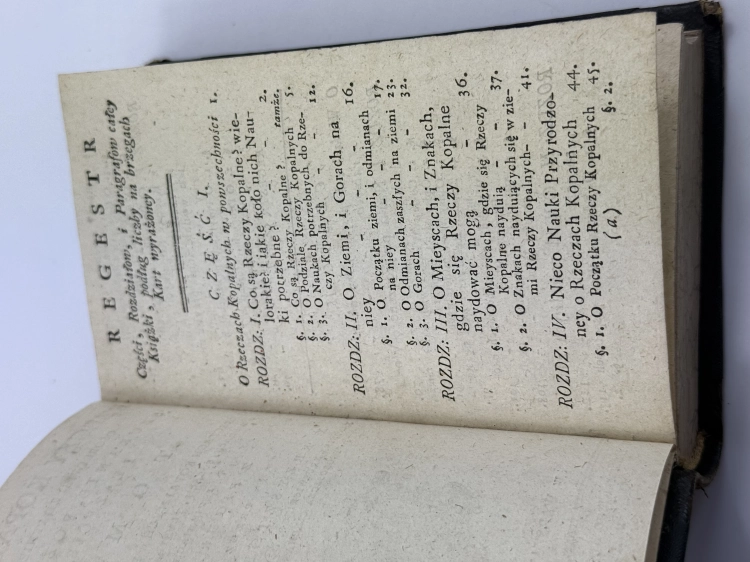 REGESTR
Części, Rozdziałow, i Paragrafow całey
Książki, podług liczby na brzegach
Kart wyrażoney.
CZĘŚĆ I.
O Rzeczach Kopalnych w powszechności 1.
ROZDZ: I. Co są Rzeczy Kopalne? wie-
lorakie? i iakie koło nich Nau-
ki potrzebne? - - 2.
§. 1. Co są Rzeczy Kopalne? tamże.
§. 2. O Podziale Rzeczy Kopalnych 5.
§. 3. O Naukach potrzebnych do Rze-
czy Kopalnych - - 12.
ROZDZ: II. O Ziemi, i Gorach na
niey - - - 16.
§. 1. O Początku ziemi, i odmianach
na niey - - - 17.
§. 2. O Odmianach zaszłych na ziemi 23.
§. 3. O Gorach - - - 32.
ROZDZ: III. O Mieyscach, i Znakach,
gdzie się Rzeczy Kopalne
naydować mogą - 36.
§. 1. O Mieyscach, gdzie się Rzeczy
Kopalne nayduią - - 37.
§. 2. O Znakach nayduiących się w zie-
mi Rzeczy Kopalnych - - 41.
ROZDZ: IV. Nieco Nauki Przyrodzo-
ney o Rzeczach Kopalnych 44.
§. 1. O Początku Rzeczy Kopalnych 45.
(a) §. 2.